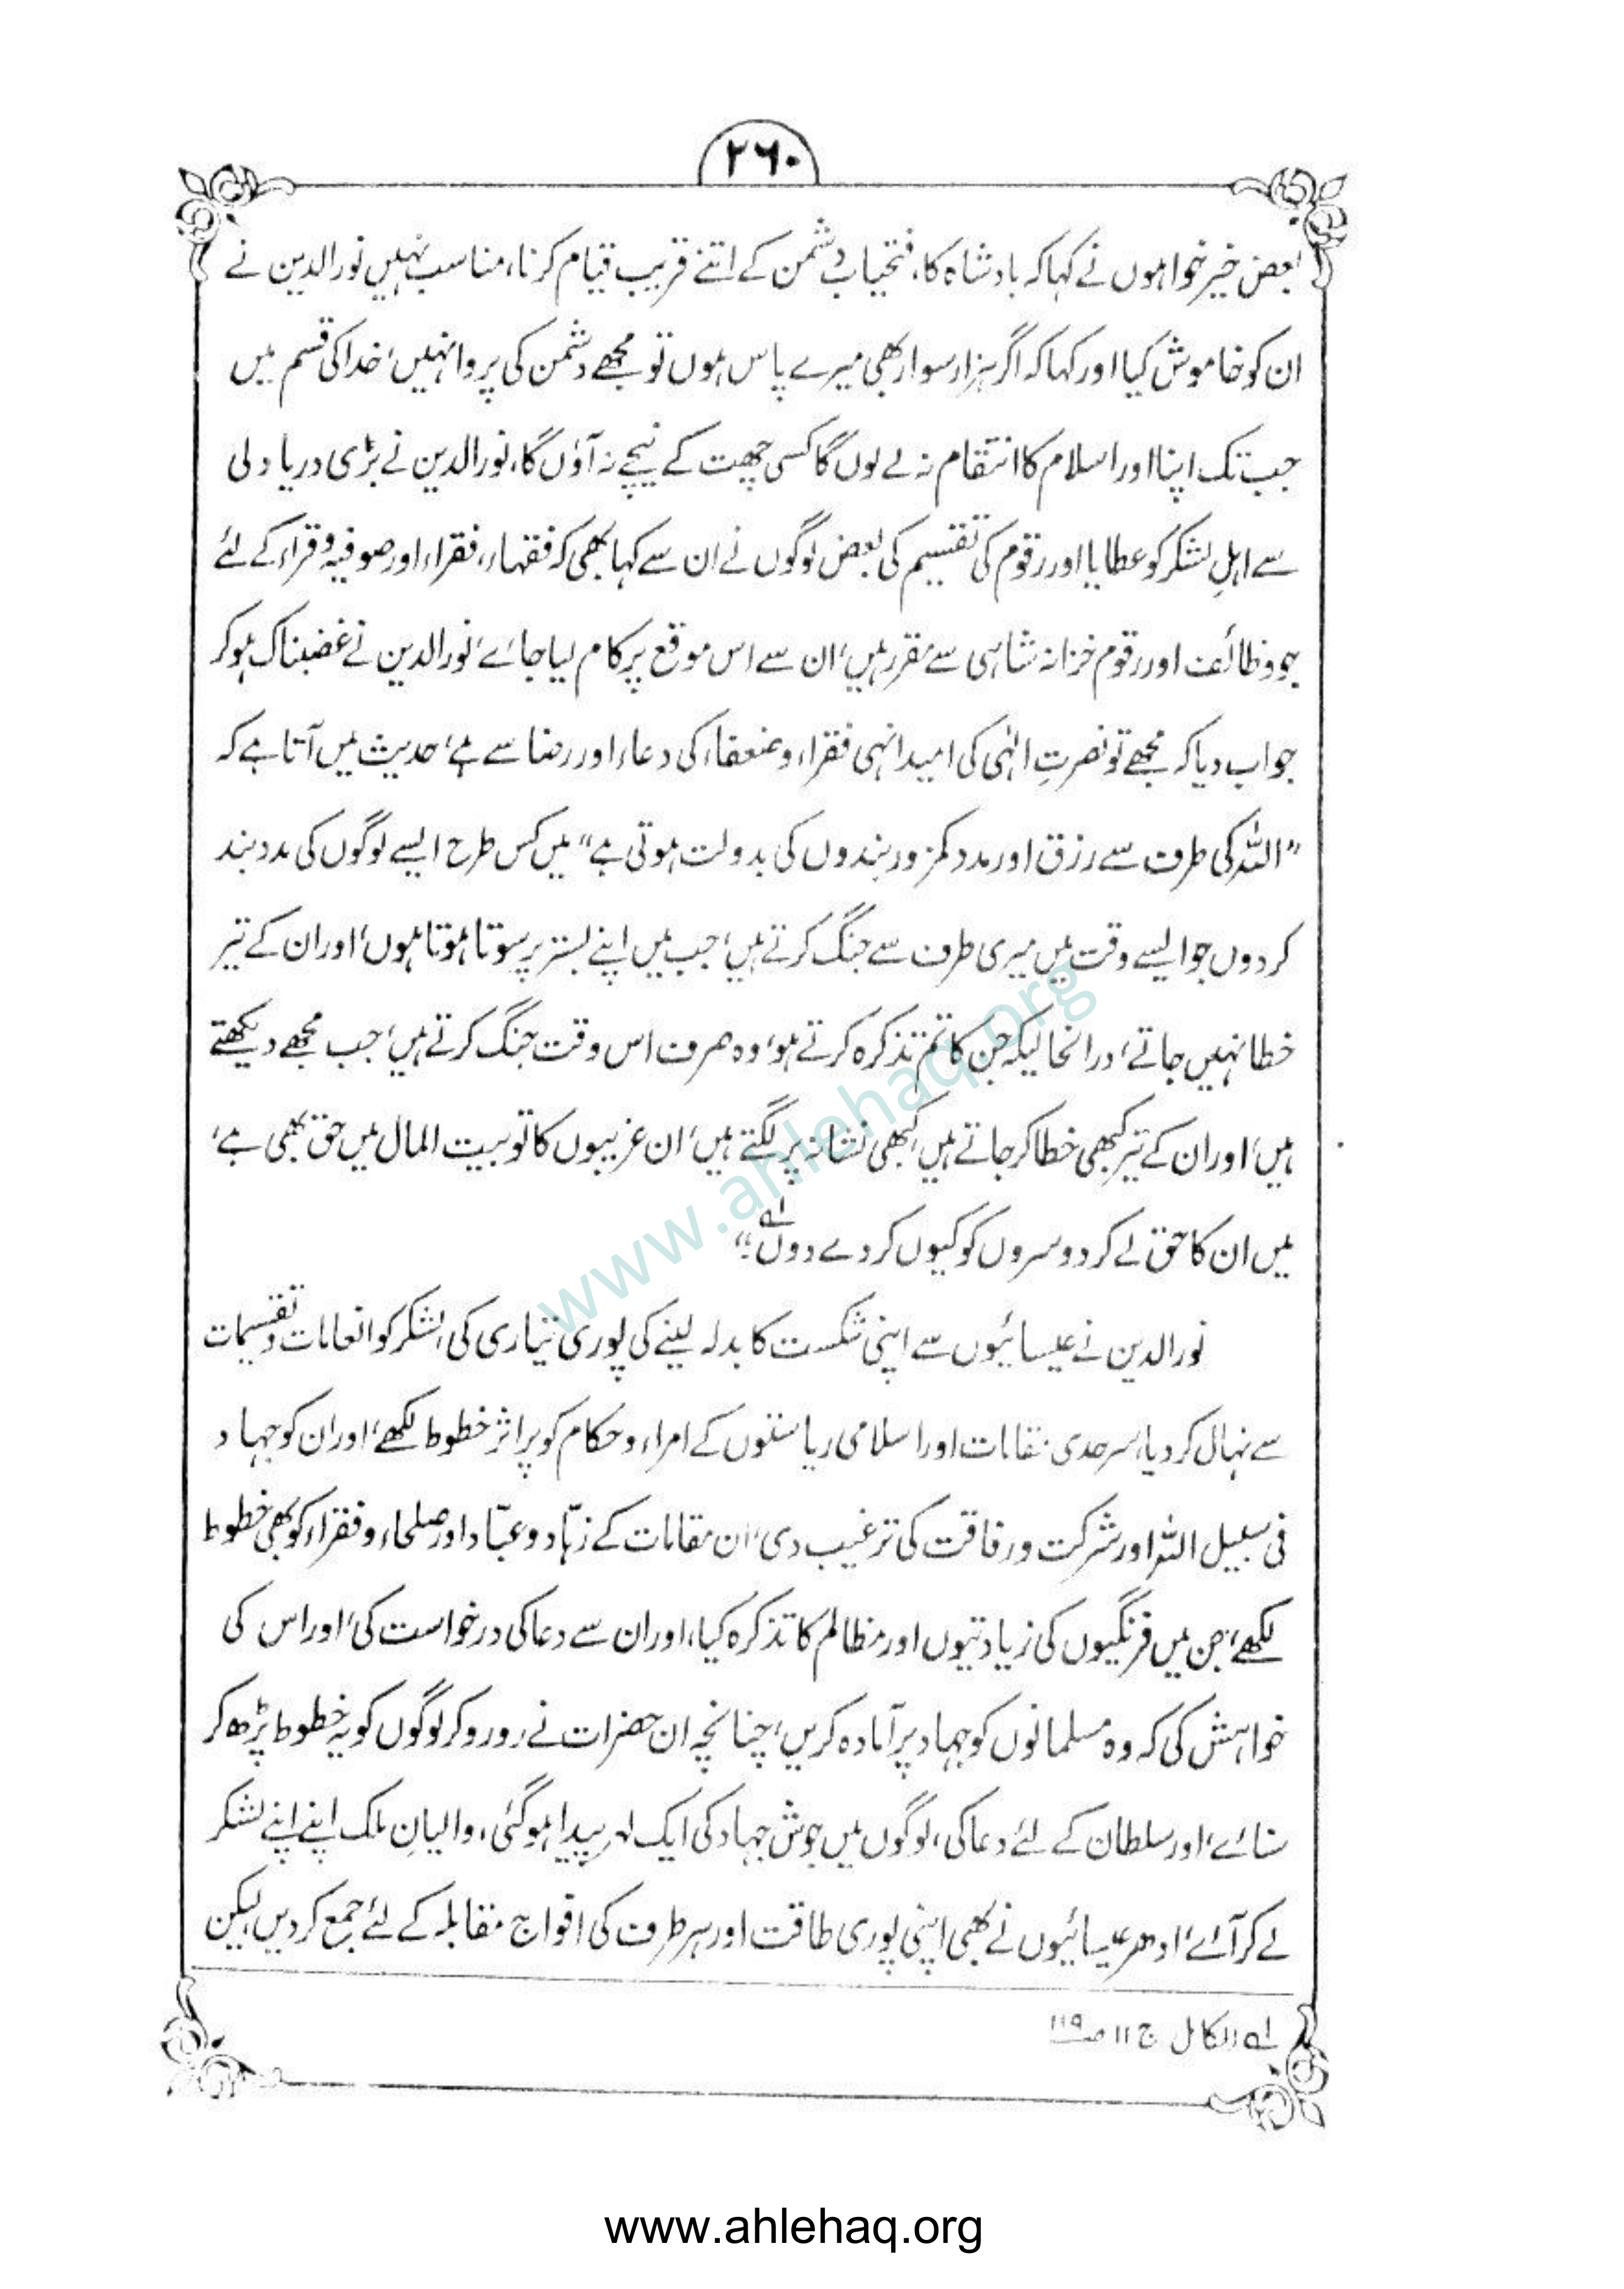 ۲۶۰
بعض خیر خواہوں نے کہا کہ بادشاہ کا، فتحیاب دشمن کے اتنے قریب قیام کرنا، مناسب نہیں نورالدین نے
ان کو خاموش کیا اور کہا کہ اگر ہزار سوار بھی میرے پاس ہوں تو مجھے دشمن کی پروا نہیں، خدا کی قسم میں
جب تک اپنا اور اسلام کا انتقام نہ لے لوں گا کسی چھت کے نیچے نہ آؤں گا، نورالدین نے بڑی دریا دلی
سے اہلِ لشکر کو عطایا اور رقوم کی تقسیم کی بعض لوگوں نے ان سے کہا بھی کہ فقہاء، فقراء اور صوفیہ و قراء کے لئے
جو وظائف اور رقوم خزانہ شاہی سے مقرر ہیں، ان سے اس موقع پر کام لیا جائے، نورالدین نے غضبناک ہو کر
جواب دیا کہ مجھے تو نصرتِ الٰہی کی امید انہی فقراء و ضعفاء کی دعاء اور رضا سے ہے، حدیث میں آتا ہے کہ
"اللہ کی طرف سے رزق اور مدد کمزور بندوں کی بدولت ہوتی ہے" میں کس طرح ایسے لوگوں کی مدد بند
کر دوں جو ایسے وقت میں میری طرف سے جنگ کرتے ہیں، جب میں اپنے بستر پر سوتا ہوتا ہوں، اور ان کے تیر
خطا نہیں جاتے، درانحالیکہ جن کا تم تذکرہ کرتے ہو، وہ صرف اس وقت جنگ کرتے ہیں، جب مجھے دیکھتے
ہیں، اور ان کے تیر کبھی خطا کر جاتے ہیں کبھی نشانہ پر لگتے ہیں، ان غریبوں کا تو بیت المال میں حق بھی ہے،
میں ان کا حق لے کر دوسروں کو کیوں کر دے دوں؟" لے
نورالدین نے عیسائیوں سے اپنی شکست کا بدلہ لینے کی پوری تیاری کی، لشکر کو انعامات و تقسیمات
سے نہال کر دیا، سرحدی مقامات اور اسلامی ریاستوں کے امراء و حکام کو پر اثر خطوط لکھے، اور ان کو جہاد
فی سبیل اللہ اور شرکت و رفاقت کی ترغیب دی، ان مقامات کے زہّاد و عبّاد اور صلحاء و فقراء کو بھی خطوط
لکھے، جن میں فرنگیوں کی زیادتیوں اور مظالم کا تذکرہ کیا، اور ان سے دعا کی درخواست کی، اور اس کی
خواہش کی کہ وہ مسلمانوں کو جہاد پر آمادہ کریں، چنانچہ ان حضرات نے رو رو کر لوگوں کو یہ خطوط پڑھ کر
سنائے، اور سلطان کے لئے دعا کی، لوگوں میں جوش جہاد کی ایک لہر پیدا ہو گئی، والیانِ ملک اپنے اپنے لشکر
لے کر آئے، ادھر عیسائیوں نے بھی اپنی پوری طاقت اور ہر طرف کی افواج مقابلہ کے لئے جمع کر دیں، لیکن
لے الکامل ج ۱۱ ص ۱۱۹
www.ahlehaq.org
www.ahlehaq.org